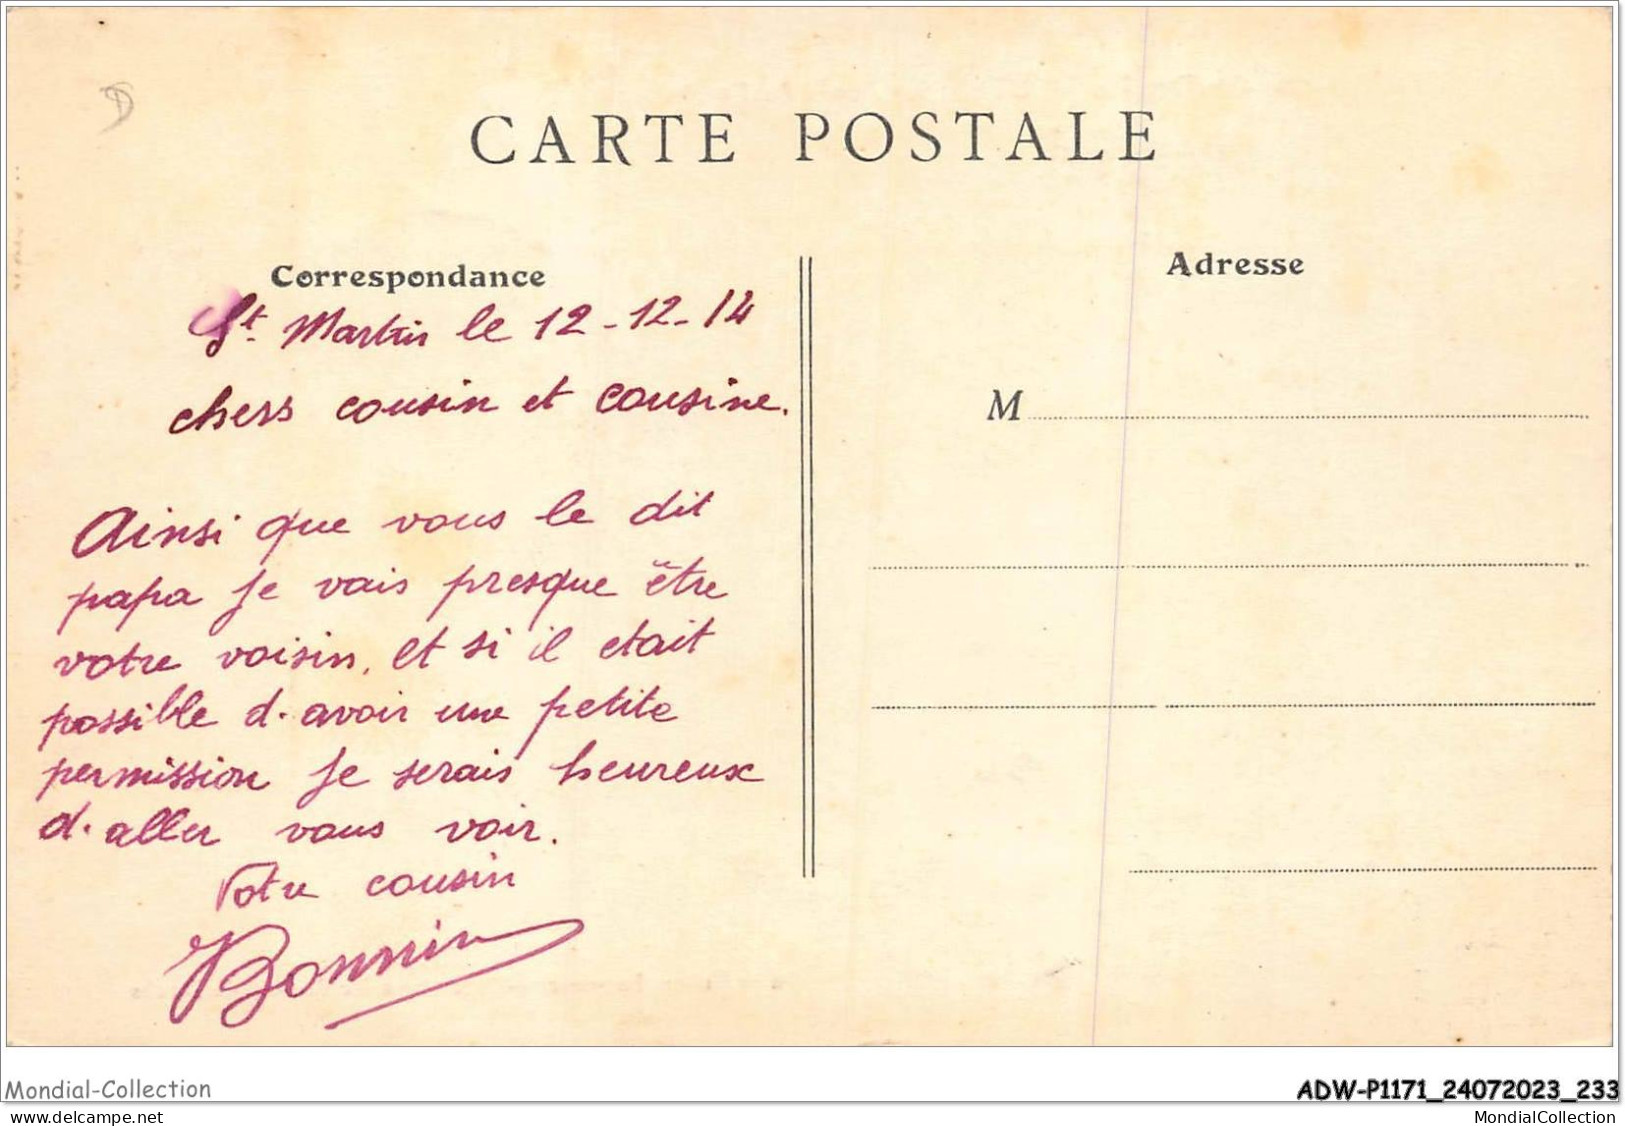 CARTE POSTALE
Correspondance
Adresse
St. Martin le 12-12-14
chers cousin et cousine.
M
Ainsi que vous le dit
papa je vais presque être
votre voisin, et si il etait
possible d'avoir une petite
permission je serais heureux
d'aller vous voir.
Votre cousin
Bonnin
Mondial-Collection
ADW-P1171_24072023_233
www.delcampe.net
MondialCollection